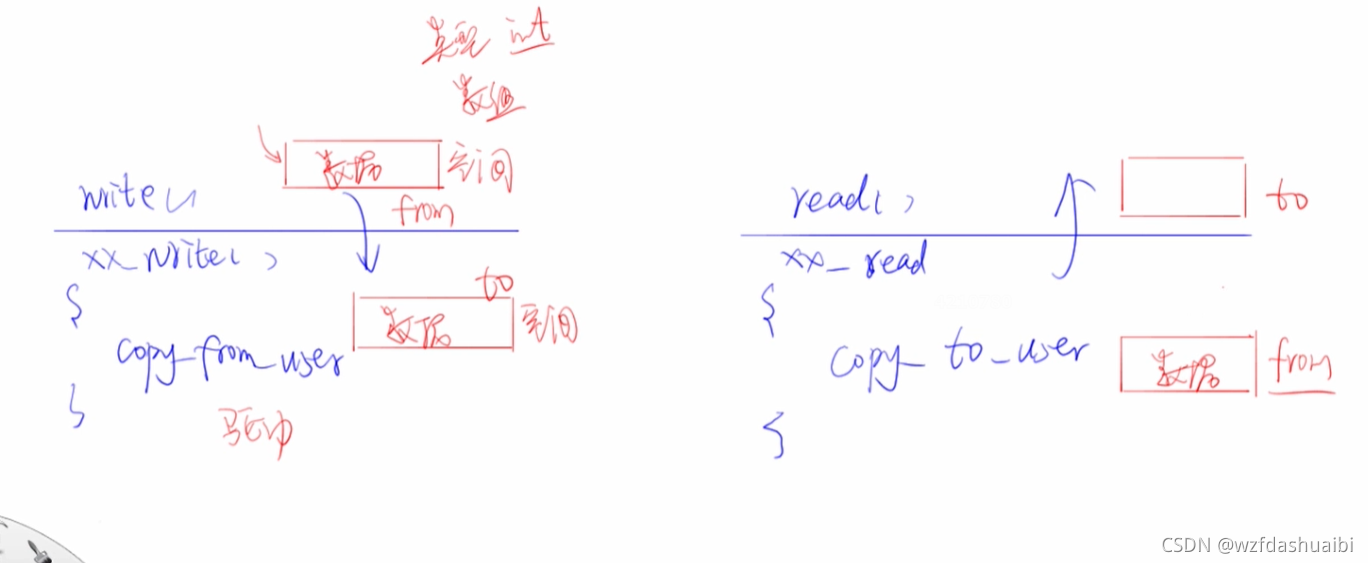 类型 int
数值
数据 空间
write()
from
xx_write()
{
to
数据 空间
copy_from_user
}
驱动
read()
to
xx_read
{
copy_to_user
数据 from
}
CSDN @wzfdashuaibi